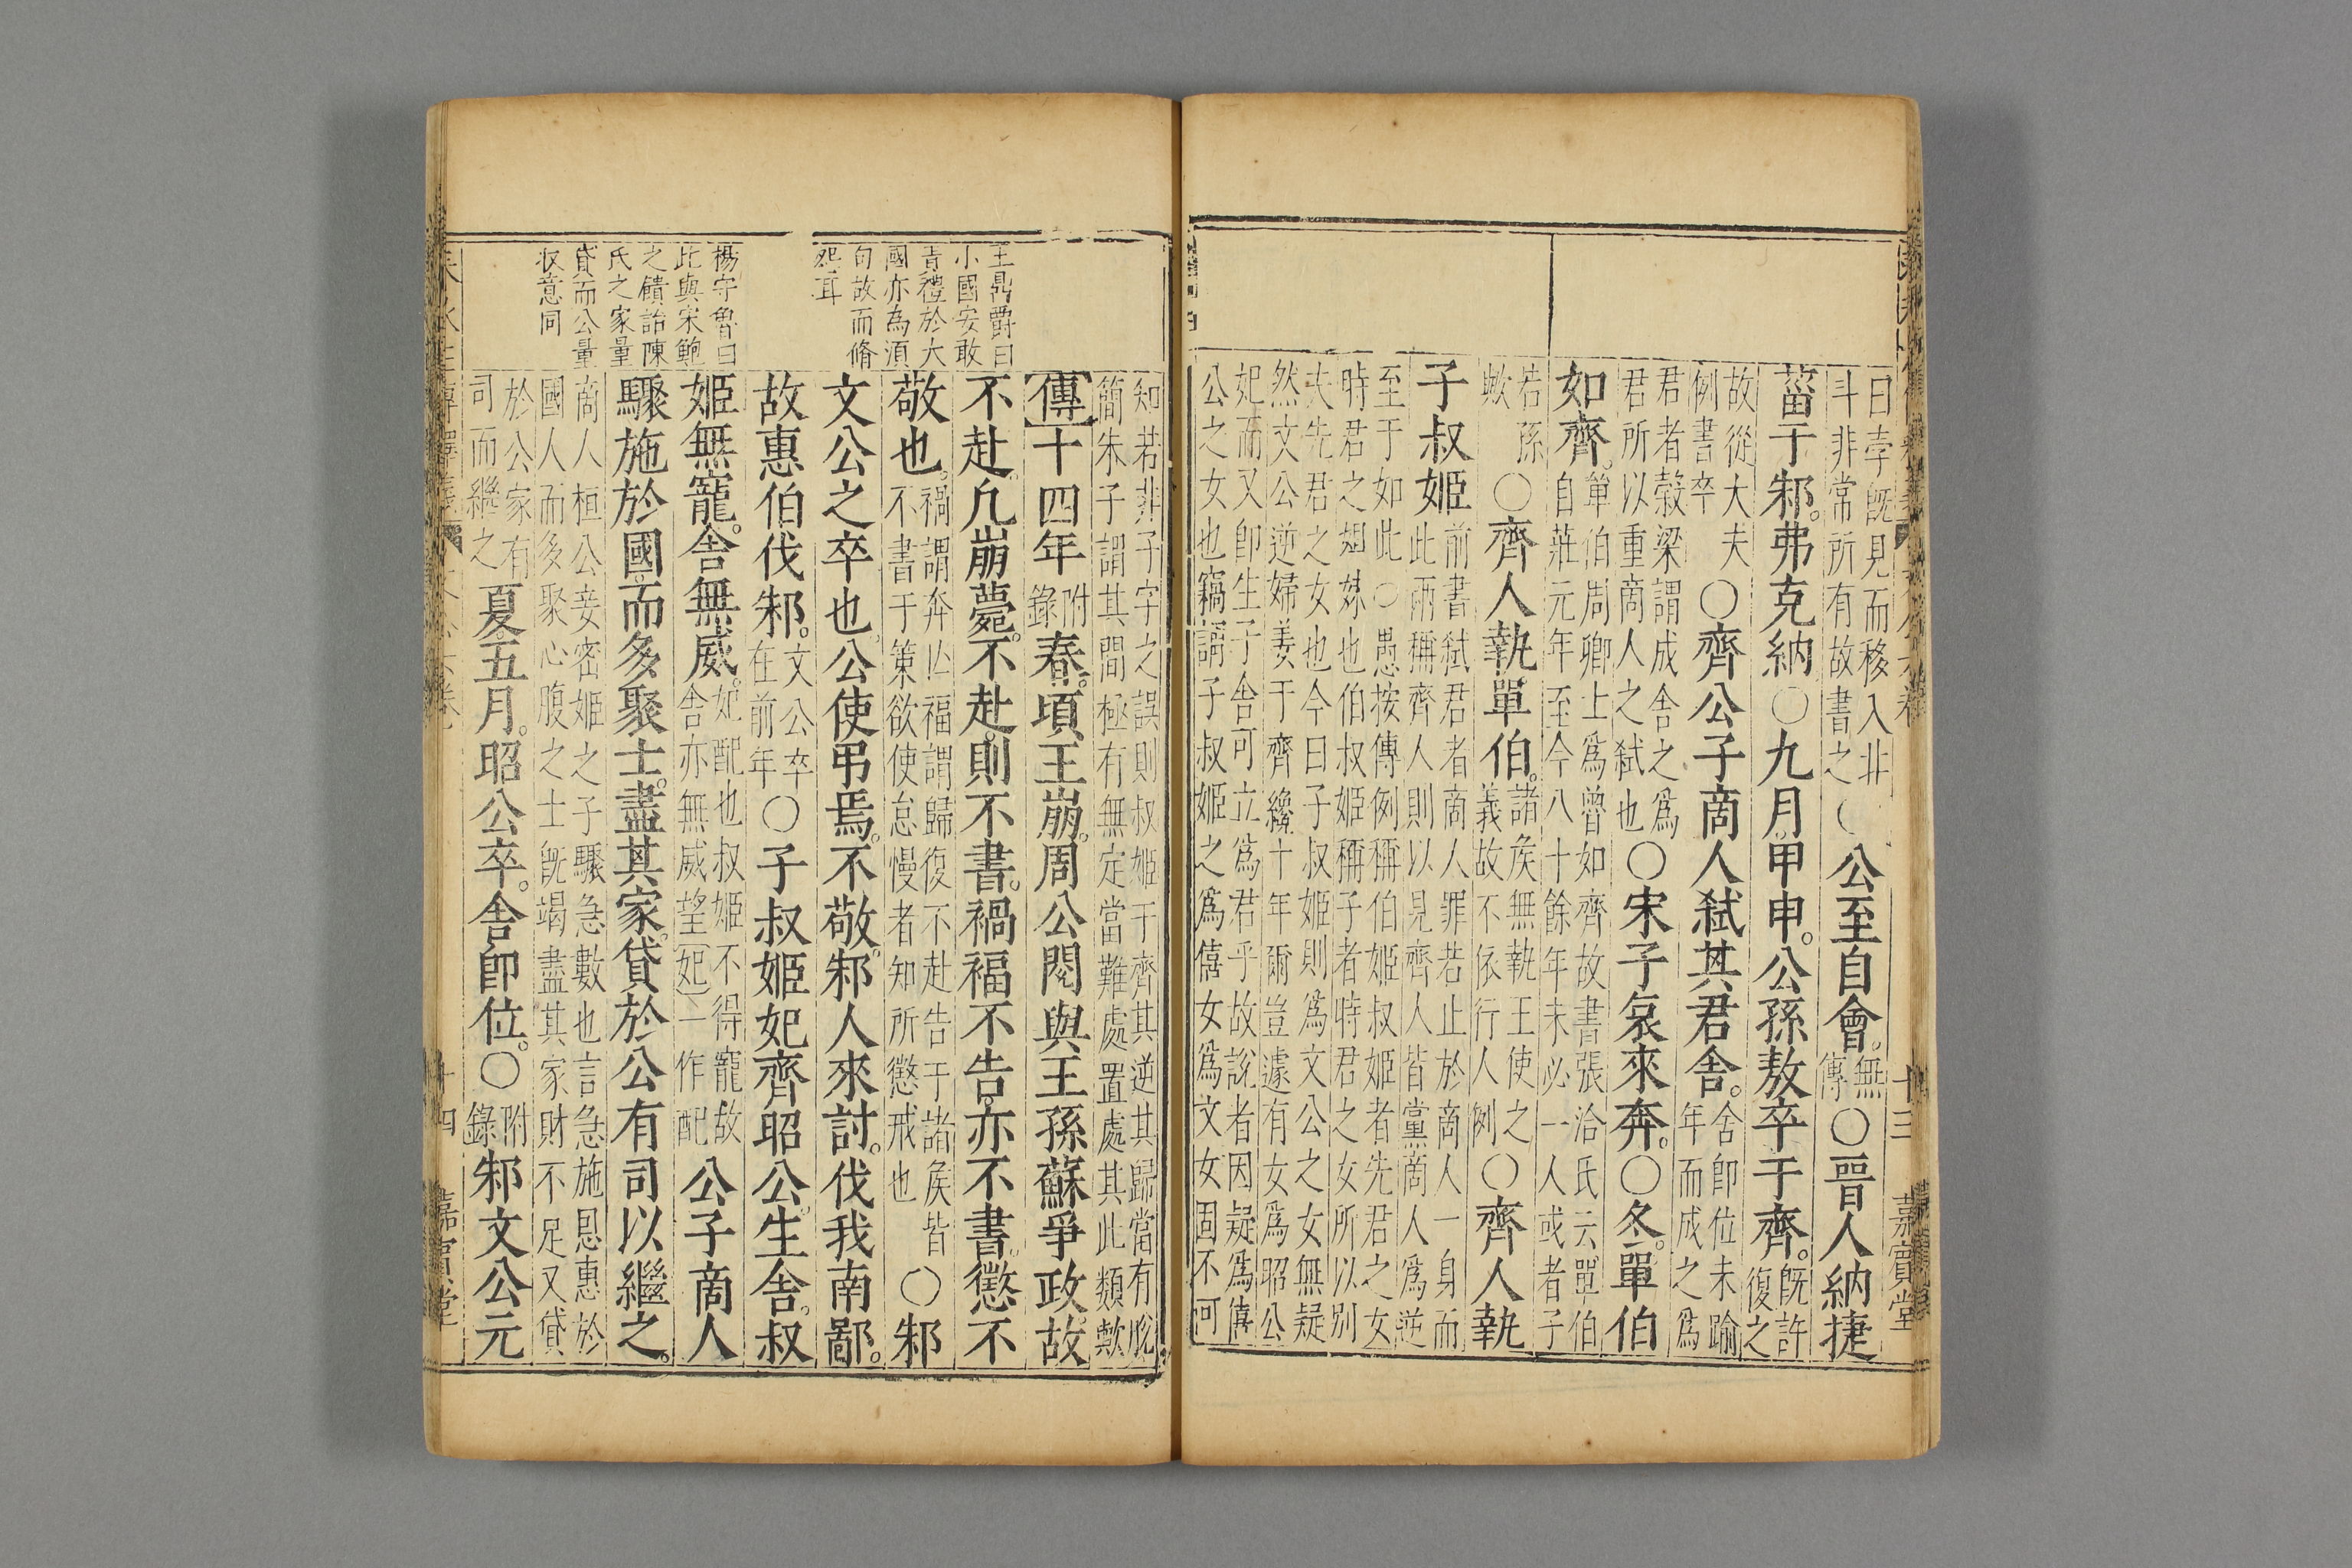 曰孛既見而移入非
斗非常所有故書之
公至自會。
無
傳
○晉人納捷
菑于邾。弗克納○九月甲申。公孫敖卒于齊。
既許
復之
故從大夫
例書卒
○齊公子商人弒其君舍。
舍即位未踰
年而成之爲
君者穀梁謂成舍之爲
君所以重商人之弒也
○宋子哀來奔。○冬。單伯
如齊。
單伯周卿士爲魯如齊故書張洽氏云單伯
自莊元年至今八十餘年未必一人或者子
若孫
歟
○齊人執單伯。
諸侯無執王使之
義故不依行人例
○齊人執
子叔姬
前書弒君者商人罪若止於商人一身而
此兩稱齊人則以見齊人皆黨商人爲逆
至于如此○愚按傳例稱伯姬叔姬者先君之女
時君之姻姊也伯叔姬稱子者時君之女所以別
夫先君之女也今曰子叔姬則爲文公之女無疑
然文公逆婦姜于齊纔十年爾豈遽有女爲昭公
妃而又即生子舍可立爲君乎故說者因疑爲僖
公之女也竊謂子叔姬之爲僖女爲文女固不可
十三
嘉賓堂
知若非子字之誤則叔姬于齊其逆其歸當有脫
簡朱子謂其間極有無定當難處置處其此類歟
傳十四年
附
錄
春。頃王崩。周公閱與王孫蘇爭政。故
不赴。凡崩薨。不赴。則不書。禍福不告。亦不書。懲不
敬也。
禍謂奔亡福謂歸復不赴告于諸侯皆
不書于策欲使怠慢者知所懲戒也
○邾
文公之卒也。公使弔焉。不敬。邾人來討。伐我南鄙。
故惠伯伐邾。
文公卒
在前年
○子叔姬妃齊昭公。生舍。叔
姬無寵。舍無威。
妃配也叔姬不得寵故
舍亦無威望妃一作配
公子商人
驟施於國而多聚士。盡其家。貸於公有司以繼之。
商人桓公妾密姬之子驟急數也言急施恩惠於
國人而多聚心腹之士既竭盡其家財不足又貸
於公家有
司而繼之
夏。五月。昭公卒。舍即位。○
附
錄
邾文公元
王鼎爵曰
小國安敢
青禮於大
國亦為須
句故而脩
怨耳
楊守魯曰
此與宋鮑
之饋詒陳
氏之家量
貸而公量
収意同
十四
嘉賓堂